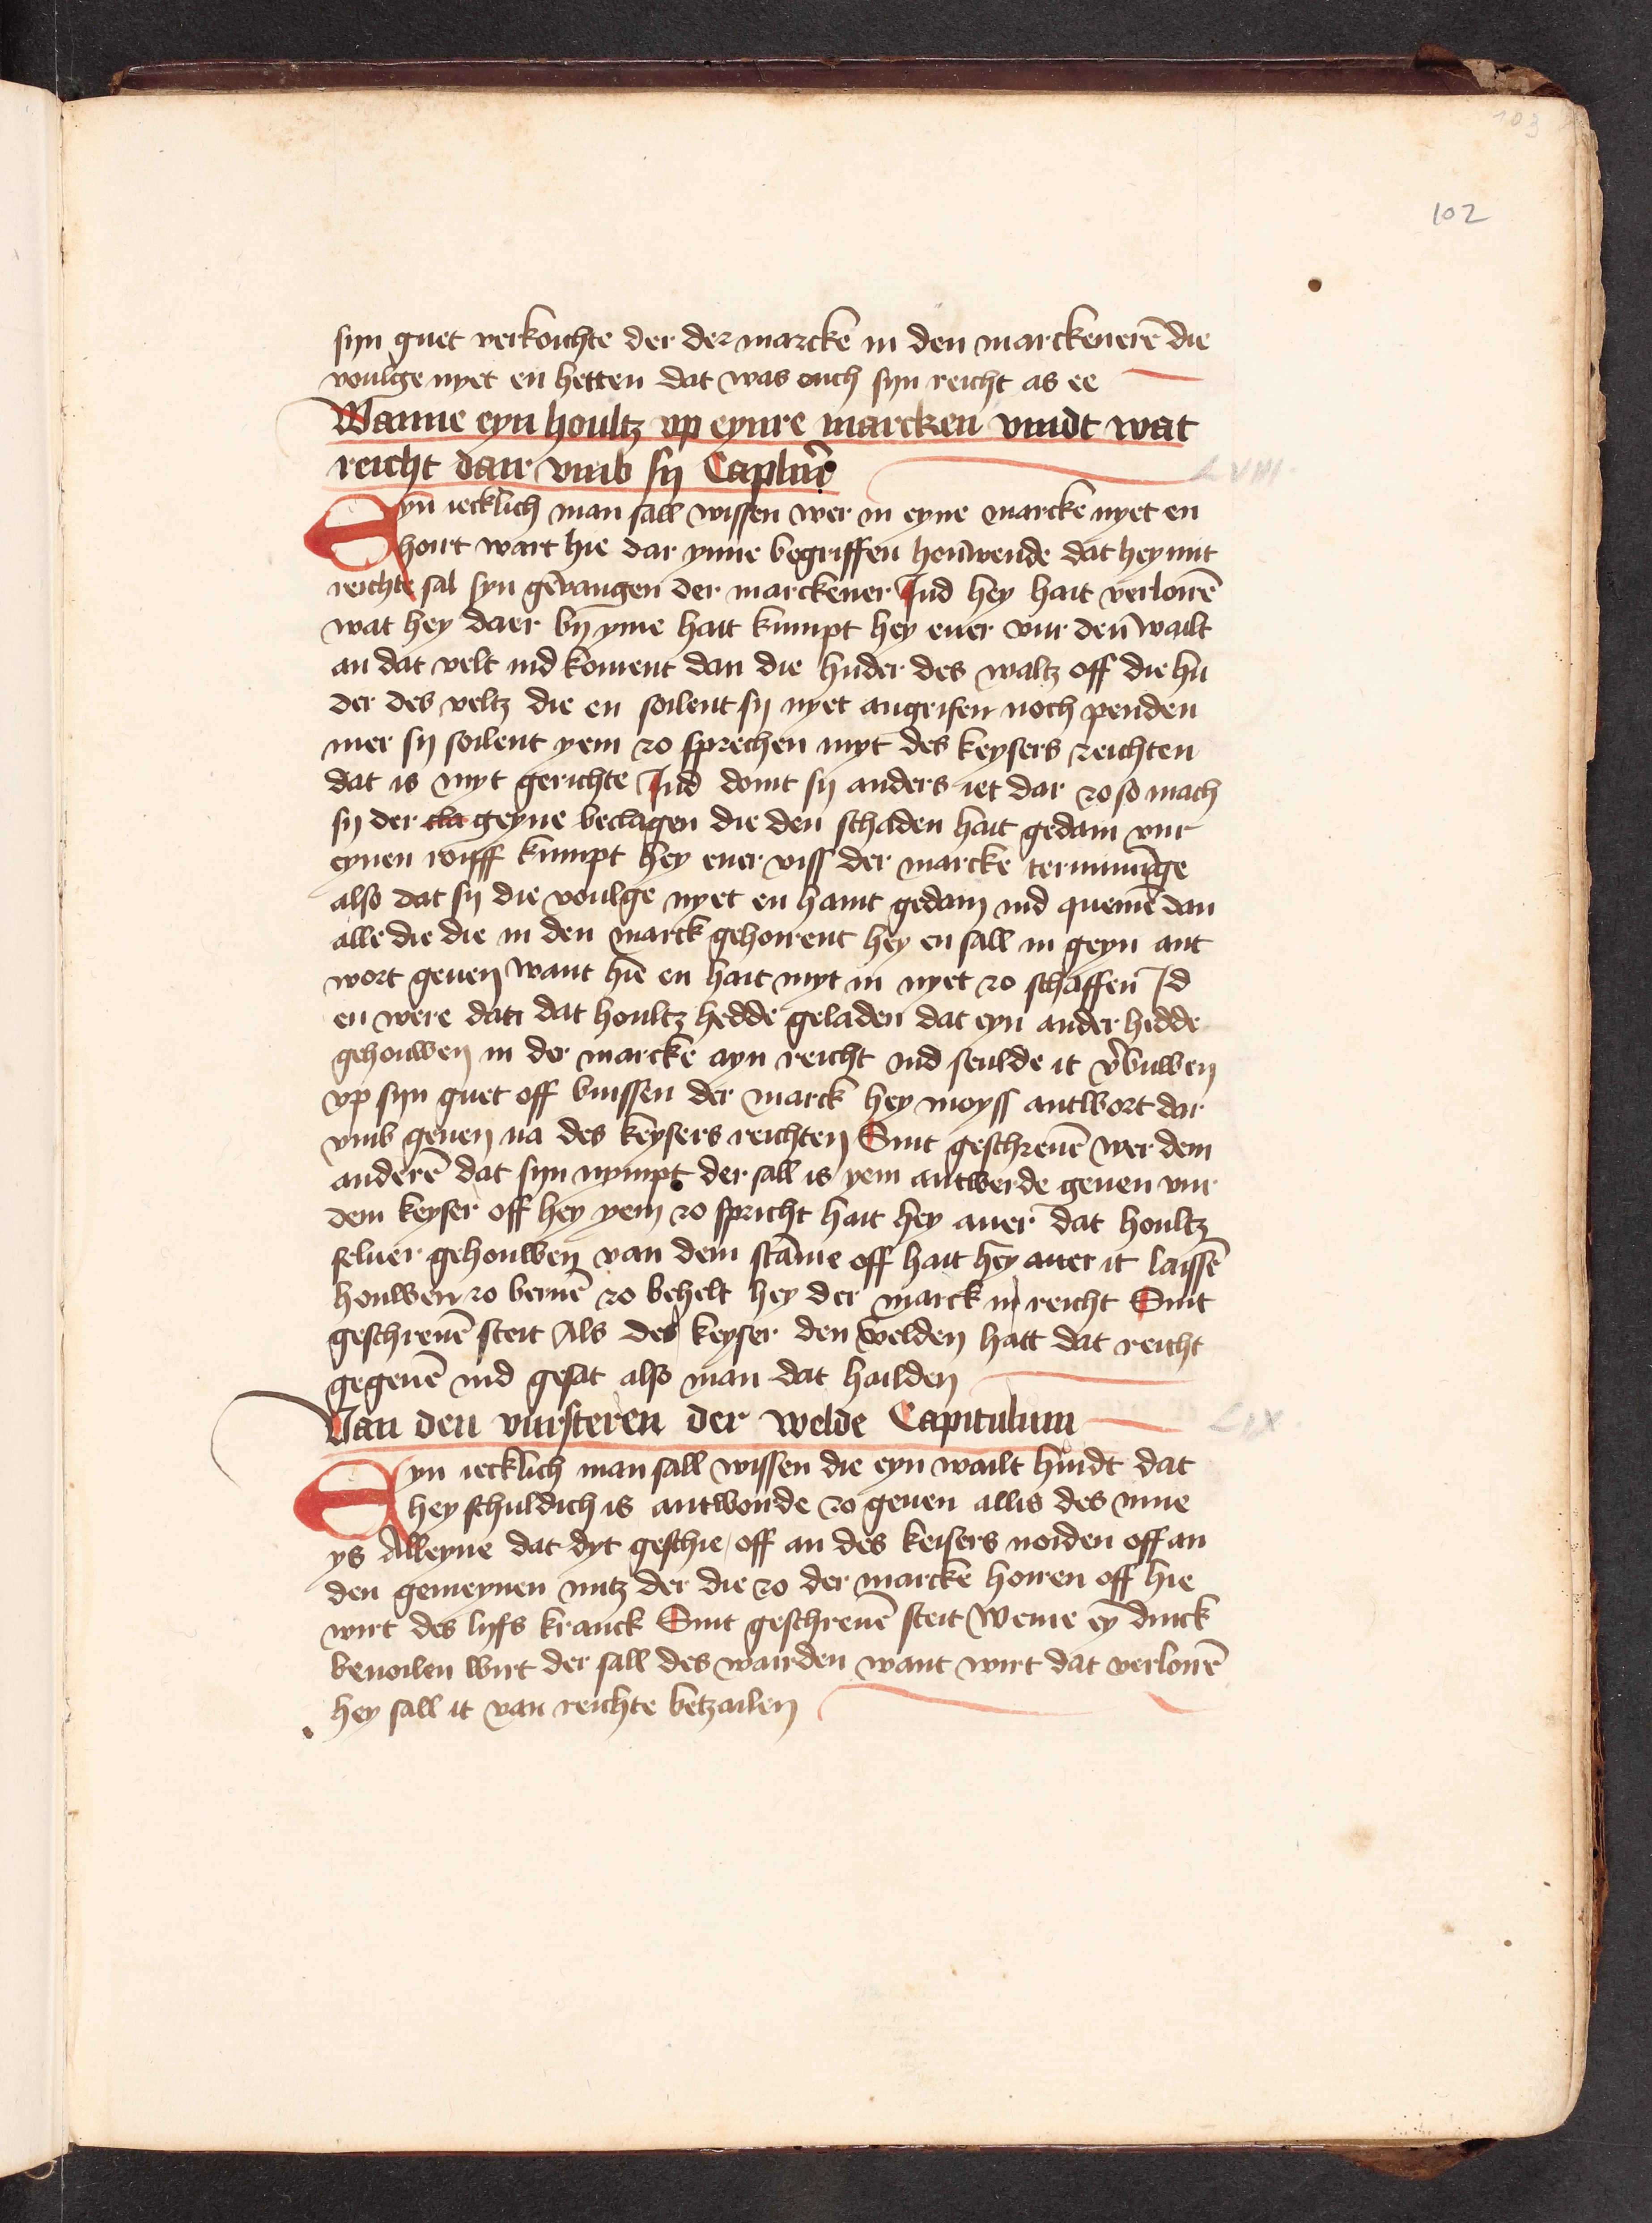 103
102
syn guet verkouchte der der marcke in den marckenerē die
voulge nyet en hetten dat was ouch syn reicht as ee
Wanne eyn houltz vp eynre marcken vindt wat
reicht dair vmb sy
LVIII
Eyn iecklich man sall wissen wer in eyne marcke nyet en
hoirt wart hie dar ynne begriffen houwende dat hey mit
reichte sal syn gevangen der marckener Ind hey hait verloirē
wat hey daer by yme hait kumpt hey euer vur den wailt
an dat velt ind koment dan die huder des waltz off die hu
der des veltz die en soilent sy nyet angrifen noch penden
mer sy soilent yem zo sprechen myt des keysers reichten
dat is myt gerichte Ind doint sy anders iet dar zo so mach
sy der cla geyne beclagen die den schaden hait gedain vur
eynen roiff kumpt hey euer viss der marcke terminūge
also dat sy die voulge nyet en haint gedain ind quemē dan
alle die die in den marck gehoirent hey en sall in geyn ant
wort geuen want hie en hait myt in nyet zo schaffen Id
en were dat dat houltz hedde geladen dat eyn ander hedde
gehouwen in der marcke ayn reicht ind seulde it v̄buwen
vp syn guet off buissen der marck hey moyss antwort dar
vmb geuen na des keysers reichten Sint geschreuē wer dem
anderē dat syn nympt der sall is yem antwerde geuen vur
dem keyser off hey yem zo spricht hait hey auer dat houltz
seluer gehouwen van dem stāme off hait hey auer it laissē
houwen zo bernē zo behelt hey der marck in reicht Sint
geschreuē steit Als des keyser den welden hait dat reicht
gegeuē ind gesat also man dat hailden
Van den vursteren der welde Capitulum
LIX
Eyn iecklich man sall wissen die eyn wailt huidt dat
hey schuldich is antwourde zo geuen allis des inne
ys Alleyne dat dyt geschie off an des keisers noiden off an
den gemeynen nutz der die zo der marcke hoiren off hie
wirt des lyfs kranck Sint geschreuē steit Weme eȳ dinck
beuoilen wirt der sall des wairden want wirt dat verloirē
hey sall it van reichte betzailen